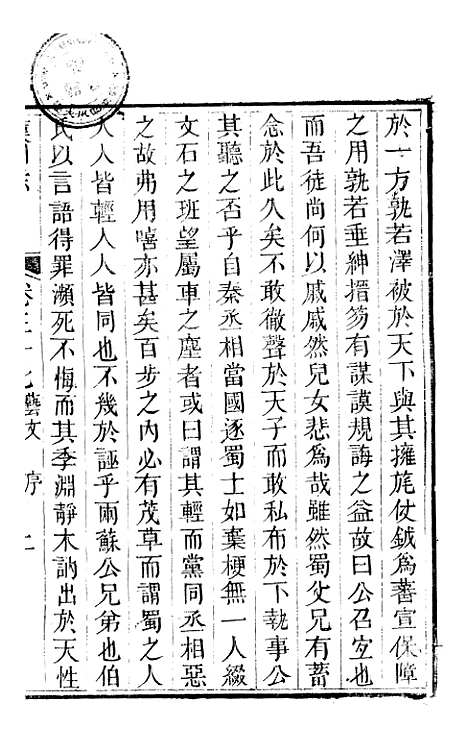 於一方孰若澤被於天下與其擁旄仗鉞爲蕃宣保障
之用孰若垂紳搢笏有謀謨規誨之益故曰公召宜也
而吾徒尚何以戚戚然兒女悲爲哉雖然蜀父兄有蓄
念於此久矣不敢徹聲於天子而敢私布於下執事公
其聽之否乎自秦丞相當國逐蜀士如棄梗無一人綴
文石之班望屬車之塵者或曰謂其輕而黨同丞相惡
之故弗用嘻亦甚矣百步之內必有茂草而謂蜀之人
人人皆輕人人皆同也不幾於誣乎兩蘇公兄弟也伯
氏以言語得罪瀕死不悔而其季淵靜木訥出於天性
卷三十七藝文 序 二